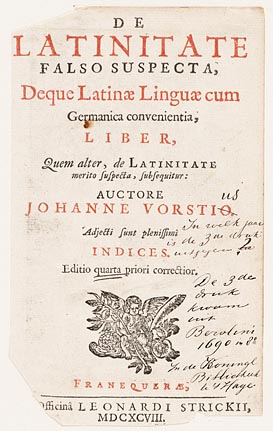 DE
LATINITATE
FALSO SUSPECTA,
Deque Latinæ Linguæ cum
Germanica convenientia,
LIBER,
Quem alter, de LATINITATE
merito suspecta, subsequitur:
AUCTORE
us
JOHANNE VORSTIO.
In welk jaar
Adjecti sunt plenissimi
is de 3de druk
INDICES.
uitgegeven?
Editio quarta priori correctior.
De 3de
druk
kwam
uit
Berolini
1690 in 8o
In de Koningl
Bibliotheek
te 's Hage
FRANEQUERÆ,
Officinâ LEONARDI STRICKII,
MDCXCVIII.